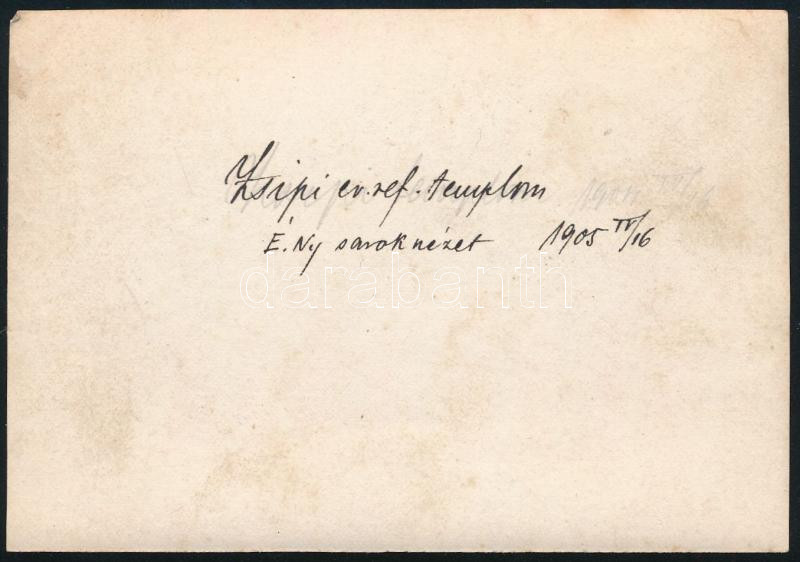 Zsipi ev. ref. templom
É. Ny saroknézet 1905 IV/16
darabanth